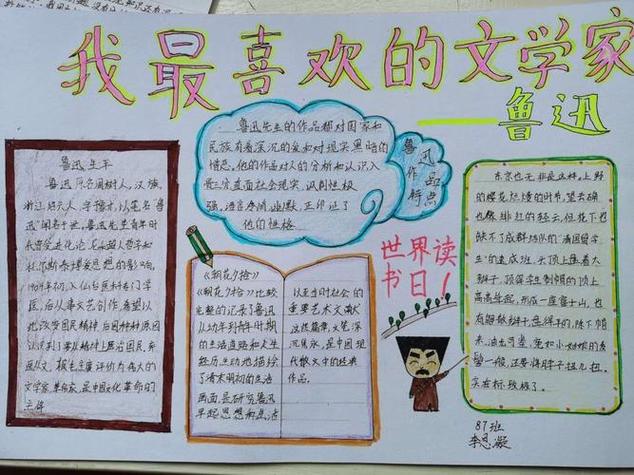 我最喜欢的文学家
——鲁迅
鲁迅生平
鲁迅原名周树人，汉族，
浙江绍兴人，字豫才，以笔名鲁
迅闻名于世，鲁迅先生青年时
代曾受进化论，尼采超人哲学和
托尔斯泰博爱思想的影响，
1904年初，入仙台医科专门学
医，后从事文艺创作，希望以
此改变国民精神
文学家 革命家，是中国文化革命的
主将
鲁迅先生的作品都对国家和
民族有着深沉的爱和对现实黑暗的
憎恶。他的作品对人的分析和认识入
骨三分直面社会现实，讽刺性极
强，语言康颃 幽默，正印证了
他们的性格
鲁迅
作品
特点
《朝花夕拾》
《朝花夕拾》比较
完整的记录了鲁迅
从幼年到青年时期
的生活道路和人生
经历，生动地描绘
了清末明初的生活
画面，是研究鲁迅
早起思想和生活
以至当时社会的
重要艺术文献
这些篇章，文笔深
沉隽永，是中国现
代散文中的经典
作品。
世界读
书日！
东京也无非是这样。上野
的樱花烂熳的时节，望去确
也像绯红的轻云，但花下也
缺不了成群结队的“清国留学
生”的速成班，头顶上盘着大
辫子，顶得学生制帽的顶上
高高耸起，形成一座富士山，也
有解散辫子，盘得平的，除下帽
来，油光可鉴，宛如小姑娘的发
髻一般，还要将脖子扭几扭。
实在标致极了。
87班
李思凝